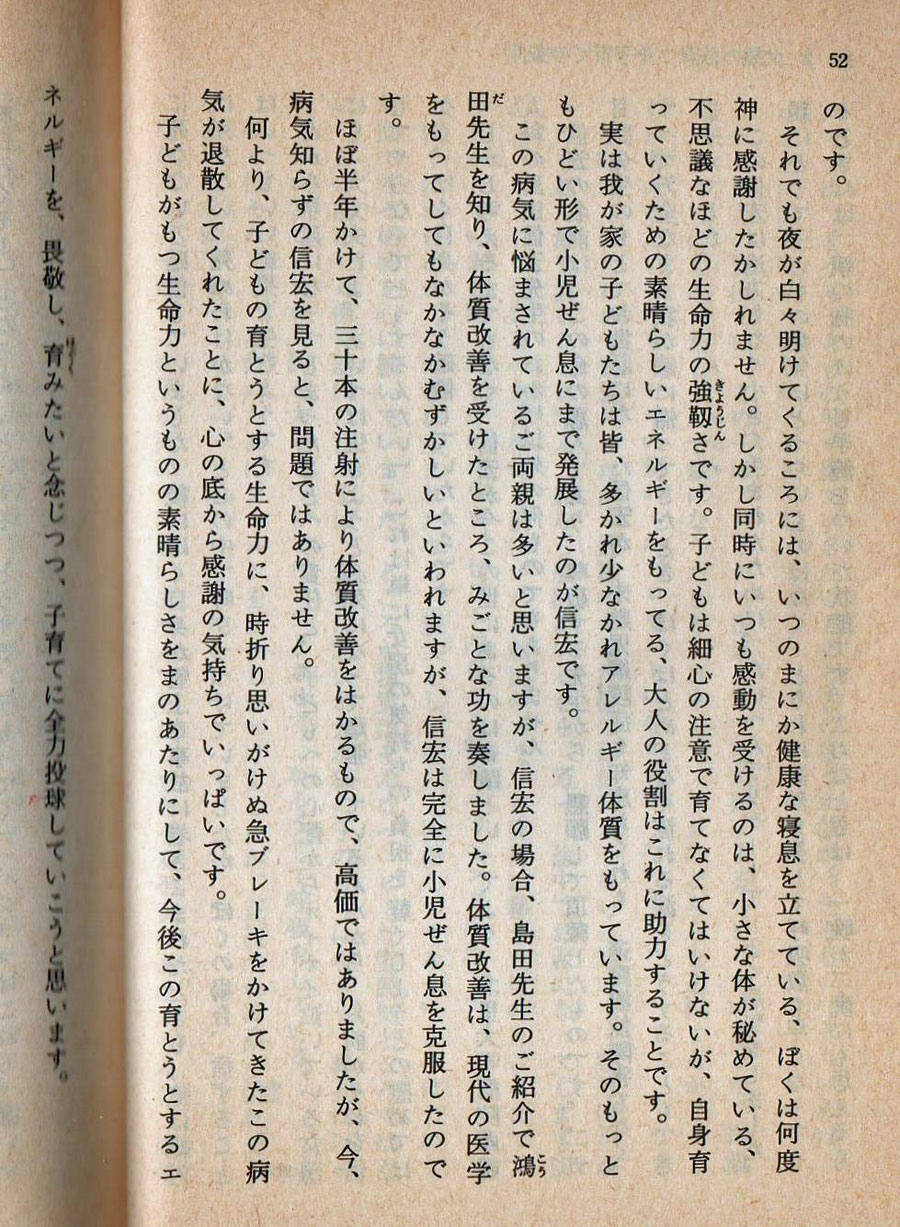 52
のです。
それでも夜が白々明けてくるころには、いつのまにか健康な寝息を立てている、ぼくは何度
神に感謝したかしれません。しかし同時にいつも感動を受けるのは、小さな体が秘めている、
不思議なほどの生命力の強靱さです。子どもは細心の注意で育てなくてはいけないが、自身育
きようじん
っていくための素晴らしいエネルギーをもってる、大人の役割はこれに助力することです。
実は我が家の子どもたちは皆、多かれ少なかれアレルギー体質をもっています。そのもっと
もひどい形で小児ぜん息にまで発展したのが信宏です。
この病気に悩まされているご両親は多いと思いますが、信宏の場合、島田先生のご紹介で鴻
こう
田先生を知り、体質改善を受けたところ、みごとな功を奏しました。体質改善は、現代の医学
だ
をもってしてもなかなかむずかしいといわれますが、信宏は完全に小児ぜん息を克服したので
す。
ほぼ半年かけて、三十本の注射により体質改善をはかるもので、高価ではありましたが、今、
病気知らずの信宏を見ると、問題ではありません。
何より、子どもの育とうとする生命力に、時折り思いがけぬ急ブレーキをかけてきたこの病
気が退散してくれたことに、心の底から感謝の気持ちでいっぱいです。
子どもがもつ生命力というものの素晴らしさをまのあたりにして、今後この育とうとするエ
ネルギーを、畏敬し、育みたいと念じつつ、子育てに全力投球していこうと思います。